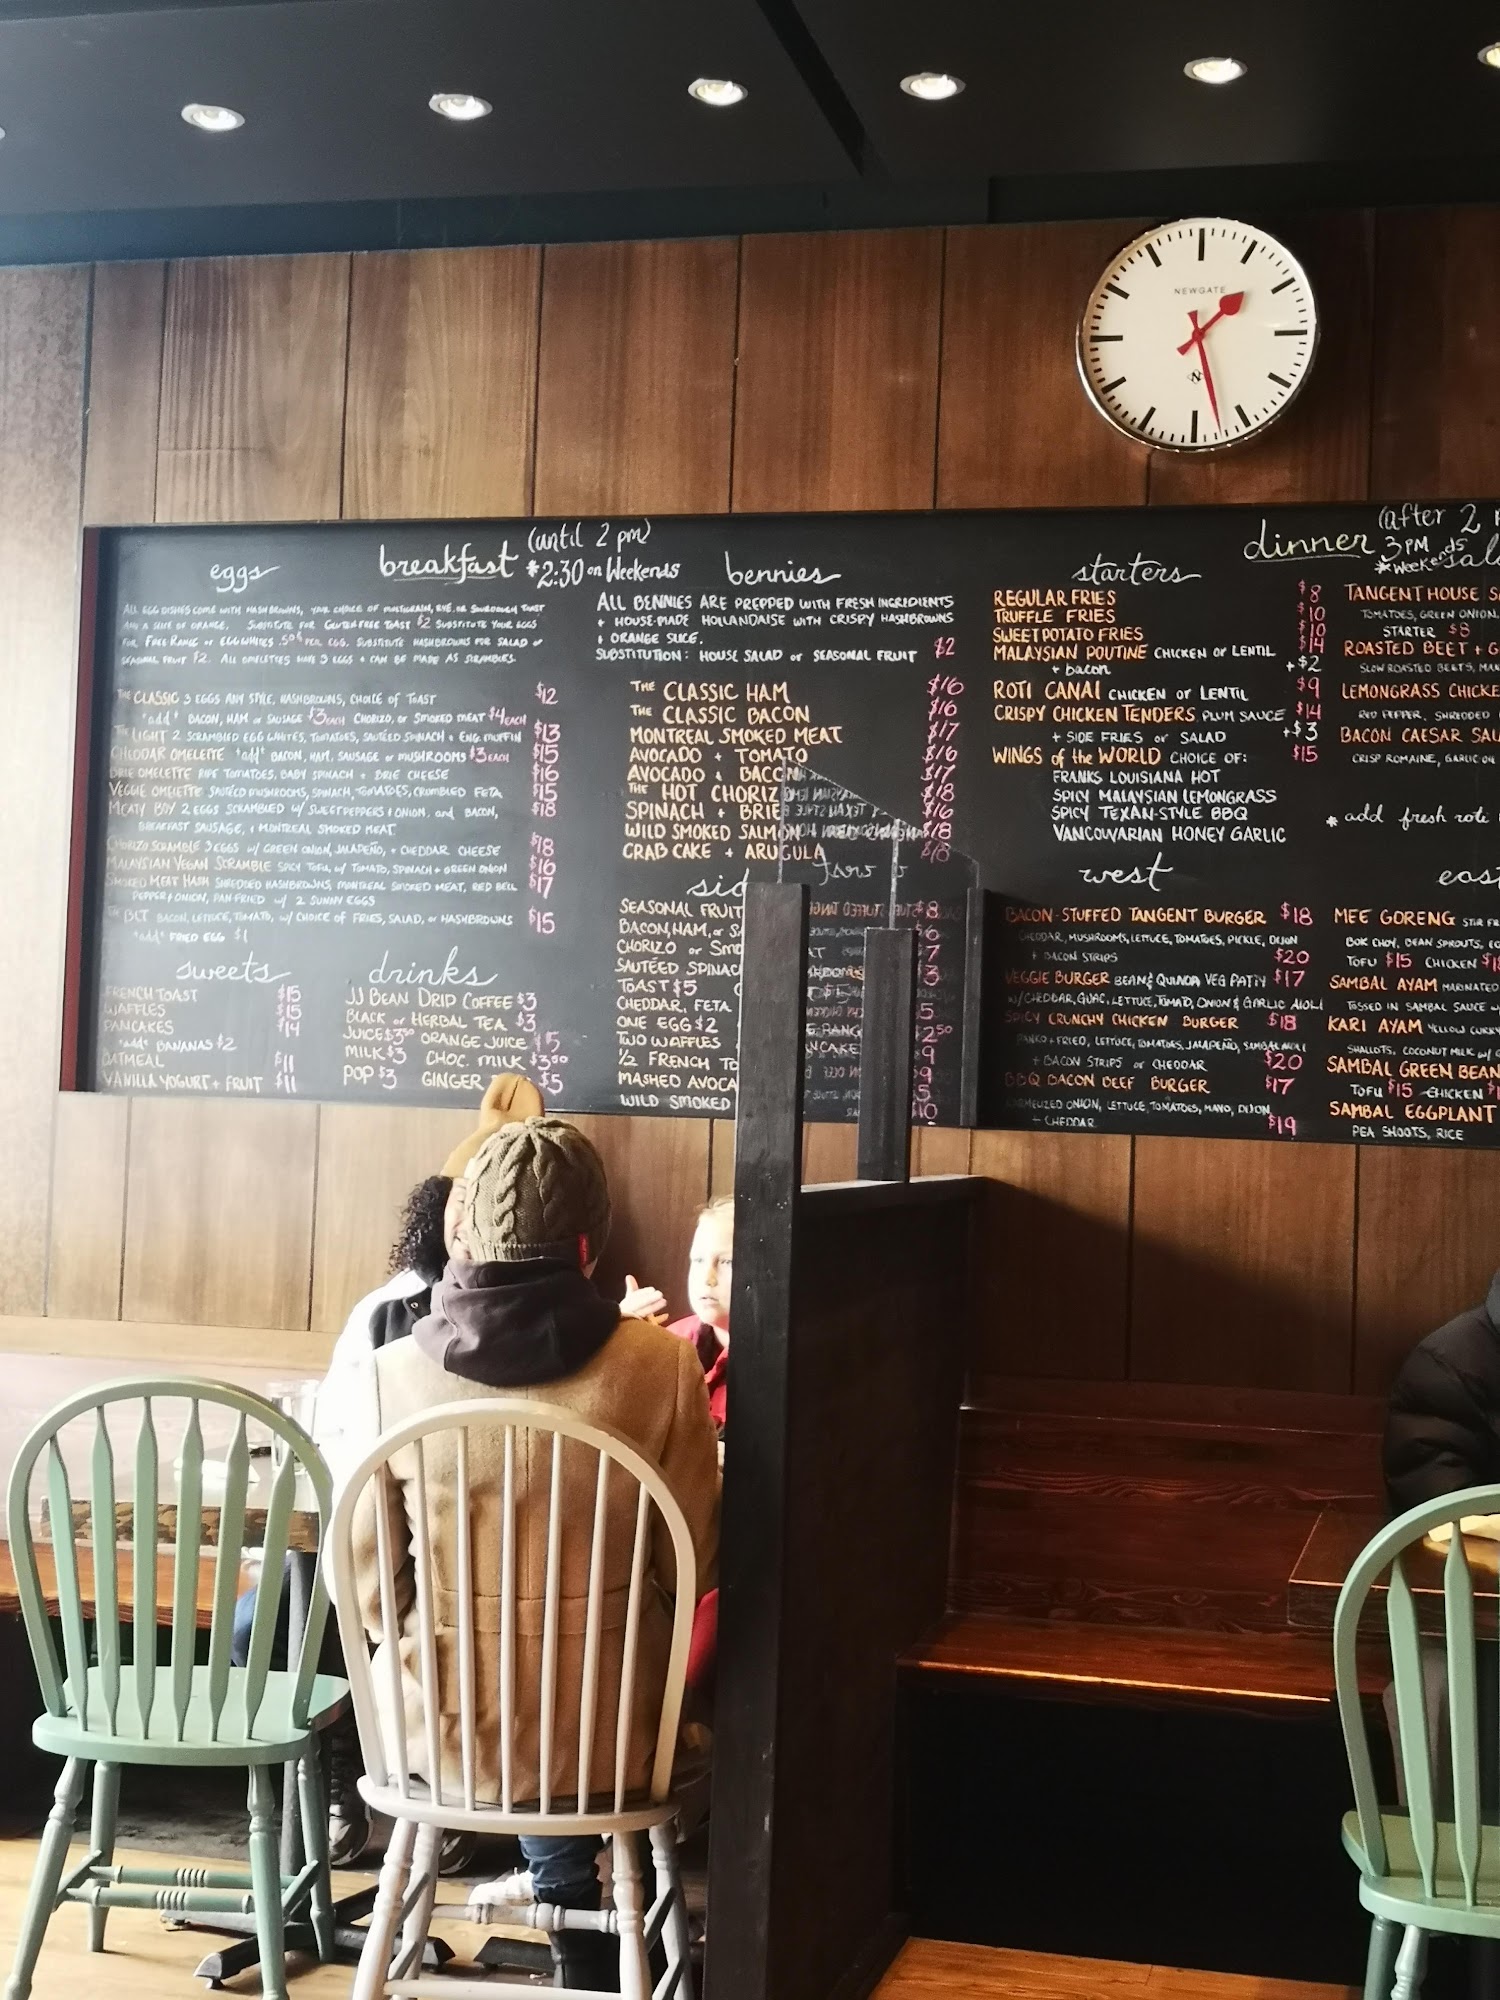 NEWGATE
breakfast (until 2 pm)
*2:30 on Weekends
eggs
ALL EGG DISHES COME WITH HASHBROWNS, YOUR CHOICE OF MULTIGRAIN, RYE, OR SOURDOUGH TOAST
AND A SLICE OF ORANGE. SUBSTITUTE FOR GLUTEN FREE TOAST $2 SUBSTITUTE YOUR EGGS
FOR FREE RANGE OR EGG WHITES .50¢ PER EGG. SUBSTITUTE HASHBROWNS FOR SALAD OR
SEASONAL FRUIT $2. ALL OMELETTES HAVE 3 EGGS + CAN BE MADE AS SCRAMBLES.
THE CLASSIC 3 EGGS ANY STYLE, HASHBROWNS, CHOICE OF TOAST $12
*add* BACON, HAM OR SAUSAGE $3 EACH CHORIZO, OR SMOKED MEAT $4 EACH
THE LIGHT 2 SCRAMBLED EGG WHITES, TOMATOES, SAUTÉED SPINACH + ENG. MUFFIN $13
CHEDDAR OMELETTE *add* BACON, HAM, SAUSAGE OR MUSHROOMS $3 EACH $15
BRIE OMELETTE RIPE TOMATOES, BABY SPINACH + BRIE CHEESE $16
VEGGIE OMELETTE SAUTÉED MUSHROOMS, SPINACH, TOMATOES, CRUMBLED FETA $15
MEATY BOY 2 EGGS SCRAMBLED W/ SWEET PEPPERS + ONION, and BACON, $18
BREAKFAST SAUSAGE, + MONTREAL SMOKED MEAT
CHORIZO SCRAMBLE 3 EGGS W/ GREEN ONION, JALAPEÑO, + CHEDDAR CHEESE $18
MALAYSIAN VEGAN SCRAMBLE SPICY TOFU W/ TOMATO, SPINACH + GREEN ONION $16
SMOKED MEAT HASH SHREDDED HASHBROWNS, MONTREAL SMOKED MEAT, RED BELL $17
PEPPER + ONION, PAN FRIED W/ 2 SUNNY EGGS
THE BLT BACON, LETTUCE, TOMATO, W/ CHOICE OF FRIES, SALAD, OR HASHBROWNS $15
*add* FRIED EGG $1
sweets
FRENCH TOAST $15
WAFFLES $15
PANCAKES $14
*add* BANANAS $2
OATMEAL $11
VANILLA YOGURT + FRUIT $11
drinks
JJ BEAN DRIP COFFEE $3
BLACK or HERBAL TEA $3
JUICE $3.50 ORANGE JUICE $5
MILK $3 CHOC. MILK $3.50
POP $3 GINGER $5
bennies
ALL BENNIES ARE PREPPED WITH FRESH INGREDIENTS
+ HOUSE-MADE HOLLANDAISE WITH CRISPY HASHBROWNS
+ ORANGE SLICE.
SUBSTITUTION: HOUSE SALAD or SEASONAL FRUIT $2
THE CLASSIC HAM $16
THE CLASSIC BACON $16
MONTREAL SMOKED MEAT $17
AVOCADO + TOMATO $16
AVOCADO + BACON $17
THE HOT CHORIZO $18
SPINACH + BRIE $16
WILD SMOKED SALMON $18
CRAB CAKE + ARUGULA $18
SEASONAL FRUIT $8
BACON, HAM, or 6
CHORIZO or 7
SAUTÉED SPINAC $3
TOAST $5
CHEDDAR, FETA 5
ONE EGG $2 $2.50
TWO WAFFLES 9
1/2 FRENCH TO $9
MASHED AVOCA $5
WILD SMOKED $10
dinner (after 2
3 PM
*Weekends
starters
REGULAR FRIES $8
TRUFFLE FRIES $10
SWEET POTATO FRIES $10
MALAYSIAN POUTINE CHICKEN or LENTIL $14
+ bacon +$2
ROTI CANAI CHICKEN or LENTIL $9
CRISPY CHICKEN TENDERS PLUM SAUCE $14
+ SIDE FRIES or SALAD +$3
WINGS of the WORLD CHOICE OF: $15
FRANKS LOUISIANA HOT
SPICY MALAYSIAN LEMONGRASS
SPICY TEXAN-STYLE BBQ
VANCOUVARIAN HONEY GARLIC
west
BACON-STUFFED TANGENT BURGER $18
CHEDDAR, MUSHROOMS, LETTUCE, TOMATOES, PICKLE, DIJON
+ BACON STRIPS $20
VEGGIE BURGER BEAN & QUINOA VEG PATTY $17
W/ CHEDDAR, GUAC, LETTUCE, TOMATO, ONION & GARLIC AIOLI
SPICY CRUNCHY CHICKEN BURGER $18
PANKO + FRIED, LETTUCE, TOMATOES, JALAPEÑO, SAMBAL AIOLI
+ BACON STRIPS or CHEDDAR $20
BBQ BACON BEEF BURGER $17
KARMELIZED ONION, LETTUCE, TOMATOES, MAYO, DIJON
+ CHEDDAR $19
TANGENT HOUSE
TOMATOES, GREEN ONION,
STARTER $8
ROASTED BEET +
SLOW ROASTED BEETS,
LEMONGRASS CHICKE
RED PEPPER, SHREDDED
BACON CAESAR SAL
CRISP ROMAINE, GARLIC
* add fresh roti
east
MEE GORENG STIR
BOK CHOY, BEAN SPROUTS,
TOFU $15 CHICKEN
SAMBAL AYAM MARINATED
TOSSED IN SAMBAL SAUCE
KARI AYAM YELLOW CURRY
SHALLOTS, COCONUT MILK
SAMBAL GREEN BEAN
TOFU $15 CHICKEN
SAMBAL EGGPLANT
PEA SHOOTS, RICE